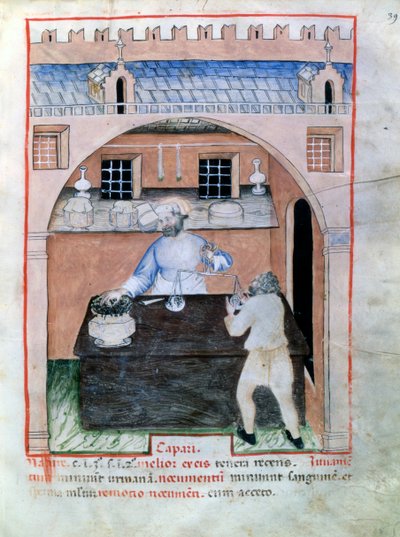 39
Capari.
Nature. c. i. 3°. s. i. 2°. melior ex eis tenera recens. Iuvamentum
minuunt urinam. nocumentum minuunt sanguinem. et
sperma remotio nocumenti. cum aceto.